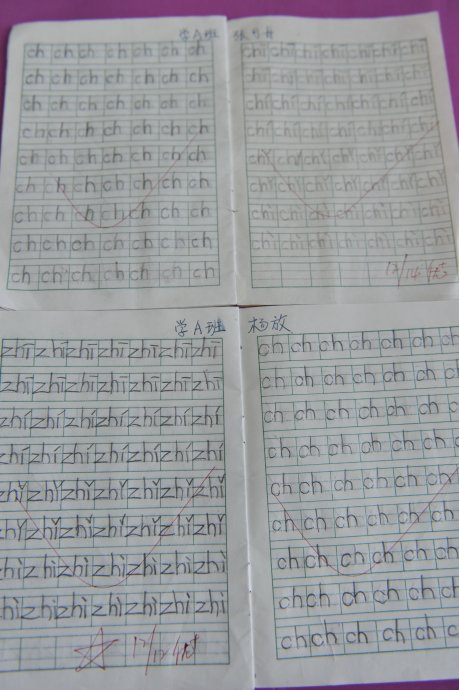 学A班 张
ch ch ch ch ch ch ch
ch ch ch ch ch ch ch
ch ch ch ch ch ch ch
ch ch ch ch ch ch ch
ch ch ch ch ch ch ch
ch ch ch ch ch ch ch
ch ch ch ch ch ch ch
ch ch ch ch ch ch ch
ch ch ch ch ch ch ch
chī chī chī chī chī chī chī
chī chī chī chī chī chī chī
chí chí chí chí chí chí chí
chí chí chí chí chí chí chí
chǐ chǐ chǐ chǐ chǐ chǐ chǐ
chǐ chǐ chǐ chǐ chǐ chǐ chǐ
chì chì chì chì chì chì chì
chì chì chì chì chì chì chì
12/14 优
学A班 杨放
zhī zhī zhī zhī zhī zhī zhī
zhī zhī zhī zhī zhī zhī zhī
zhí zhí zhí zhí zhí zhí zhí
zhí zhí zhí zhí zhí zhí zhí
zhǐ zhǐ zhǐ zhǐ zhǐ zhǐ zhǐ
zhǐ zhǐ zhǐ zhǐ zhǐ zhǐ zhǐ
zhì zhì zhì zhì zhì zhì zhì
zhì zhì zhì zhì zhì zhì zhì
12/12 优
ch ch ch ch ch ch c
ch ch ch ch ch ch c
ch ch ch ch ch ch c
ch ch ch ch ch ch c
ch ch ch ch ch ch c
ch ch ch ch ch ch c
ch ch ch ch ch ch c
ch ch ch ch ch ch c
ch ch ch ch ch c